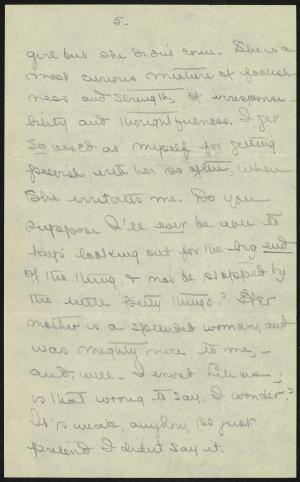 5.
give but she didn't come. She is a
most curious mixture of foolish-
ness and strength, of irresponsi-
bility and thoughtfulness. I get
so vexed at myself for getting
peevish with her so often, when
she irritates me. Do you
suppose I'll ever be able to
keep looking out for the big end
of the thing, & not be stopped by
the little petty things? Her
mother is a splendid woman, and
was mighty nice to me, –
and, well – I envied
is that wrong to say, I wonder?
It's weak, anyhow, so just
pretend I didn't say it.